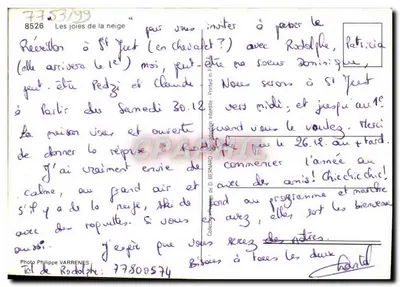 7753/99
8526 "Les joies de la neige"
pour vous inviter à passer le
Réveillon à St Just (en chevalet?) avec Rodolphe, Patricia
(elle arrivera le 1er) moi, peut-être ma soeur Dominique,
peut-être Pedzi et Claude. Nous serons à St Just
à Partir du Samedi 30.12 vers midi, et jusqu'au 1er.
La maison vous est ouverte quand vous le voulez. Merci
de donner la réponse à Rodolphe le 26.12 au + tard.
J'ai vraiment envie de commencer l'année au
calme, au grand air et avec des amis! Chic chic chic!
s'il y a de la neige, ski de fond au programme et marche
avec des raquettes. Si vous en avez, elles sont les bienvenues
aussi. J'espère que vous serez des nôtres.
Photo Philippe VARRENES
Bisous à tous les deux
Tel de Rodolphe: 77800574
Chantal